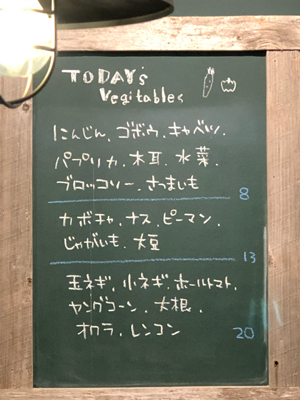 TODAY's
Vegitables
にんじん. ゴボウ. キャベツ.
パプリカ. 木耳. 水菜.
ブロッコリー. さつまいも
8
カボチャ. ナス. ピーマン.
じゃがいも. 大豆
13
玉ネギ. 小ネギ. ホールトマト.
ヤングコーン. 大根.
オクラ. レンコン
20